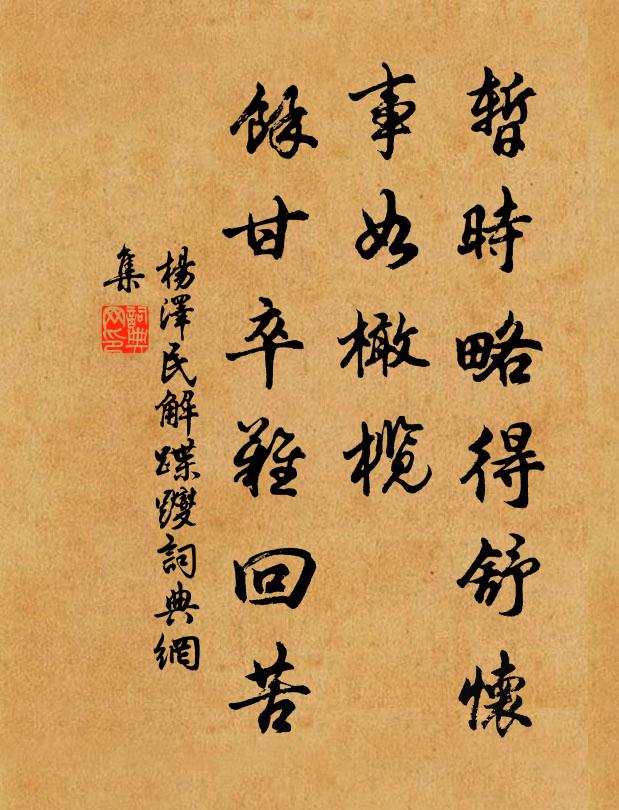 暫時略得舒懷
事如橄欖
餘甘卒難回苦
楊澤民解蹀躞詞典網
集
詞典
网印